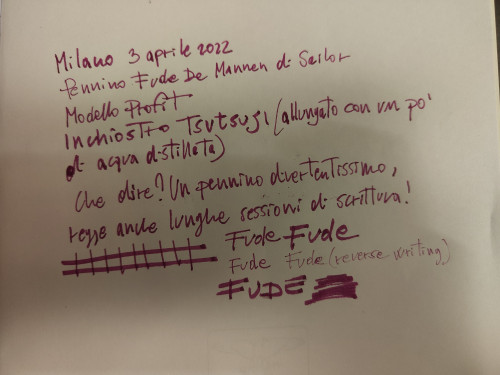 Milano 3 aprile 2022
Pennino Fude De Mannen di Sailor
Modello Profit
Inchiostro Tsutsuji (allungato con un po'
di acqua distillata)
Che dire? Un pennino divertentissimo,
regge anche lunghe sessioni di scrittura!
Fude Fude
Fude Fude (reverse writing)
FUDE